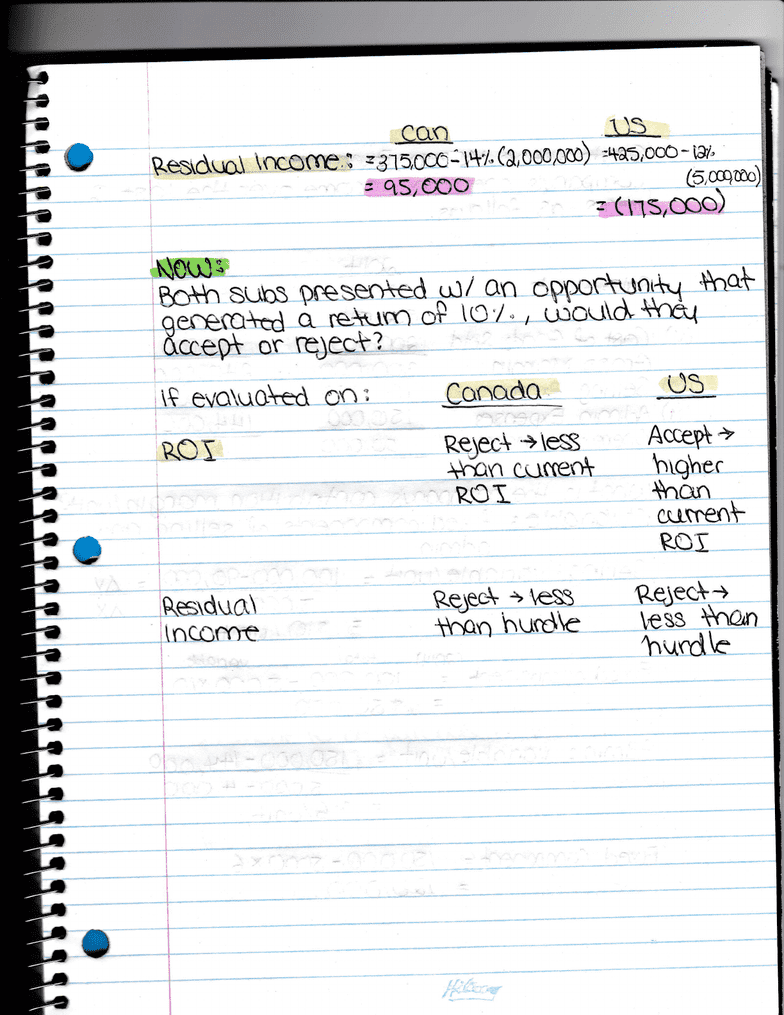 Can US
Residual Income: = 375000 - 14% (2,000,000) = 425,000 - 12%
(5,000,000)
= 95,000 = (175,000)
Now:
Both subs presented w/ an opportunity that
generated a return of 10%, would they
accept or reject?
If evaluated on: Canada US
ROI Reject → less Accept →
than current higher
ROI than
current
ROI
Residual Reject → less Reject →
Income than hurdle less than
hurdle
Hilroy